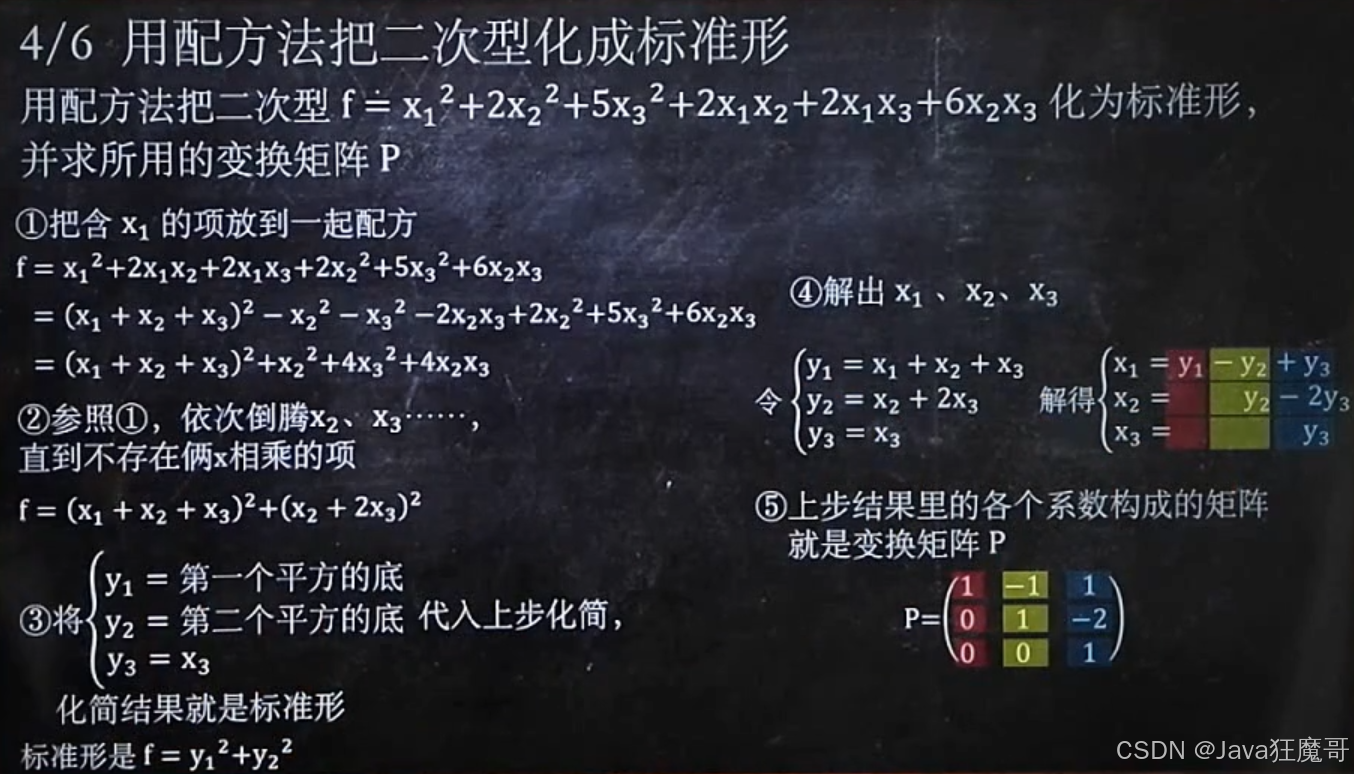 4/6 用配方法把二次型化成标准形
用配方法把二次型 f = x₁²+2x₂²+5x₃²+2x₁x₂+2x₁x₃+6x₂x₃ 化为标准形，
并求所用的变换矩阵 P
①把含 x₁ 的项放到一起配方
f = x₁²+2x₁x₂+2x₁x₃+2x₂²+5x₃²+6x₂x₃
= (x₁ + x₂ + x₃)² − x₂² − x₃² −2x₂x₃+2x₂²+5x₃²+6x₂x₃
= (x₁ + x₂ + x₃)²+x₂²+4x₃²+4x₂x₃
②参照①，依次倒腾x₂、x₃……，
直到不存在俩x相乘的项
f = (x₁ + x₂ + x₃)²+(x₂ + 2x₃)²
③将
y₁ = 第一个平方的底
y₂ = 第二个平方的底
y₃ = x₃
代入上步化简，
化简结果就是标准形
标准形是 f = y₁²+y₂²
④解出 x₁ 、x₂、x₃
令
y₁ = x₁ + x₂ + x₃
y₂ = x₂ + 2x₃
y₃ = x₃
解得
x₁ = y₁ − y₂ + y₃
x₂ = y₂ − 2y₃
x₃ = y₃
⑤上步结果里的各个系数构成的矩阵
就是变换矩阵 P
P=
1 −1 1
0 1 −2
0 0 1
CSDN @Java狂魔哥